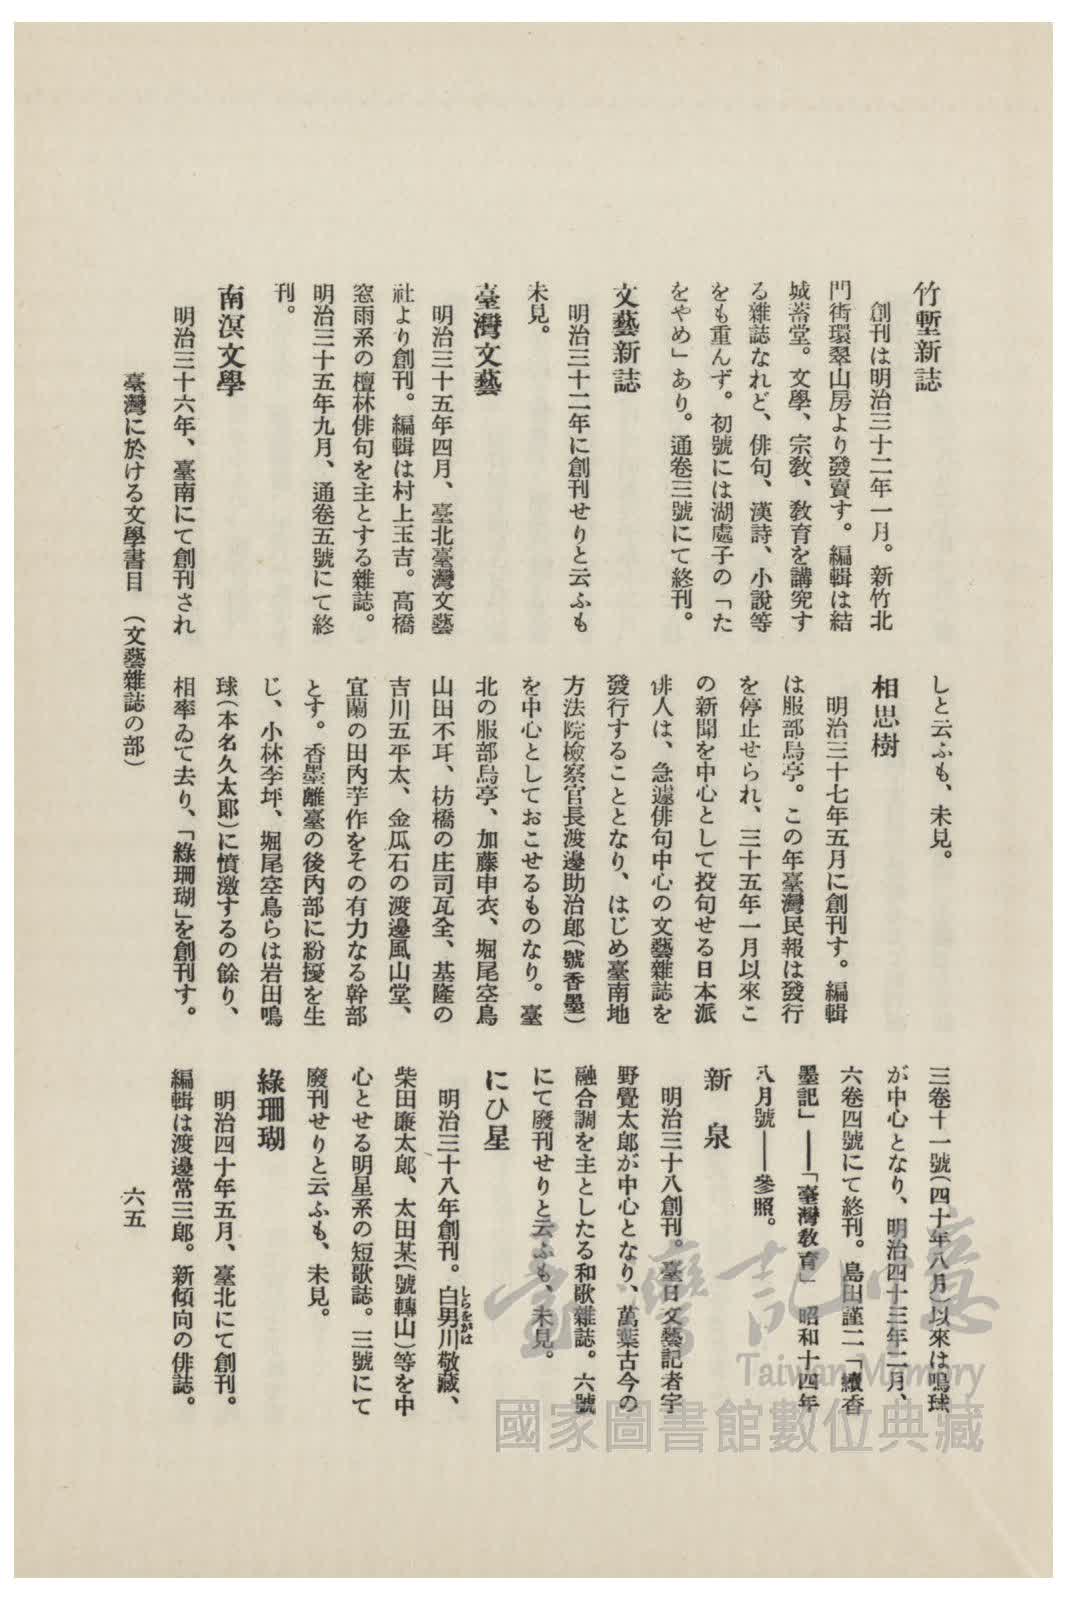 竹塹新誌
創刊は明治三十二年一月。新竹北
門街環翠山房より發賣す。編輯は結
城蓄堂。文學、宗敎、敎育を講究す
る雜誌なれど、俳句、漢詩、小說等
をも重んず。初號には湖處子の「た
をやめ」あり。通卷三號にて終刊。
文藝新誌
明治三十二年に創刊せりと云ふも
未見。
臺灣文藝
明治三十五年四月、臺北臺灣文藝
社より創刊。編輯は村上玉吉。高橋
窓雨系の檀林俳句を主とする雜誌。
明治三十五年九月、通卷五號にて終
刊。
南溟文學
明治三十六年、臺南にて創刊され
しと云ふも、未見。
相思樹
明治三十七年五月に創刊す。編輯
は服部烏亭。この年臺灣民報は發行
を停止せられ、三十五年一月以來こ
の新聞を中心として投句せる日本派
俳人は、急遽俳句中心の文藝雜誌を
發行することとなり、はじめ臺南地
方法院檢察官長渡邊助治郞(號香墨)
を中心としておこせるものなり。臺
北の服部烏亭、加藤申衣、堀尾空鳥
山田不耳、枋橋の庄司瓦全、基隆の
吉川五平太、金瓜石の渡邊風山堂、
宜蘭の田內芋作をその有力なる幹部
とす。香墨離臺の後內部に紛擾を生
じ、小林李坪、堀尾空鳥らは岩田鳴
球(本名久太郞)に憤激するの餘り、
相率ゐて去り、「綠珊瑚」を創刊す。
三卷十一號(四十年八月)以來は鳴球
が中心となり、明治四十三年二月、
六卷四號にて終刊。島田謹二「續香
墨記」——「臺灣敎育」昭和十四年
八月號——參照。
新泉
明治三十八創刊。臺日文藝記者宇
野覺太郞が中心となり、萬葉古今の
融合調を主としたる和歌雜誌。六號
にて廢刊せりと云ふも、未見。
にひ星
明治三十八年創刊。白男川敬藏、
しらをがは
柴田廉太郞、太田某(號轉山)等を中
心とせる明星系の短歌誌。三號にて
廢刊せりと云ふも、未見。
綠珊瑚
明治四十年五月、臺北にて創刊。
編輯は渡邊常三郞。新傾向の俳誌。
臺灣に於ける文學書目 (文藝雜誌の部)
六五
臺灣記憶
Taiwan Memory
國家圖書館數位典藏